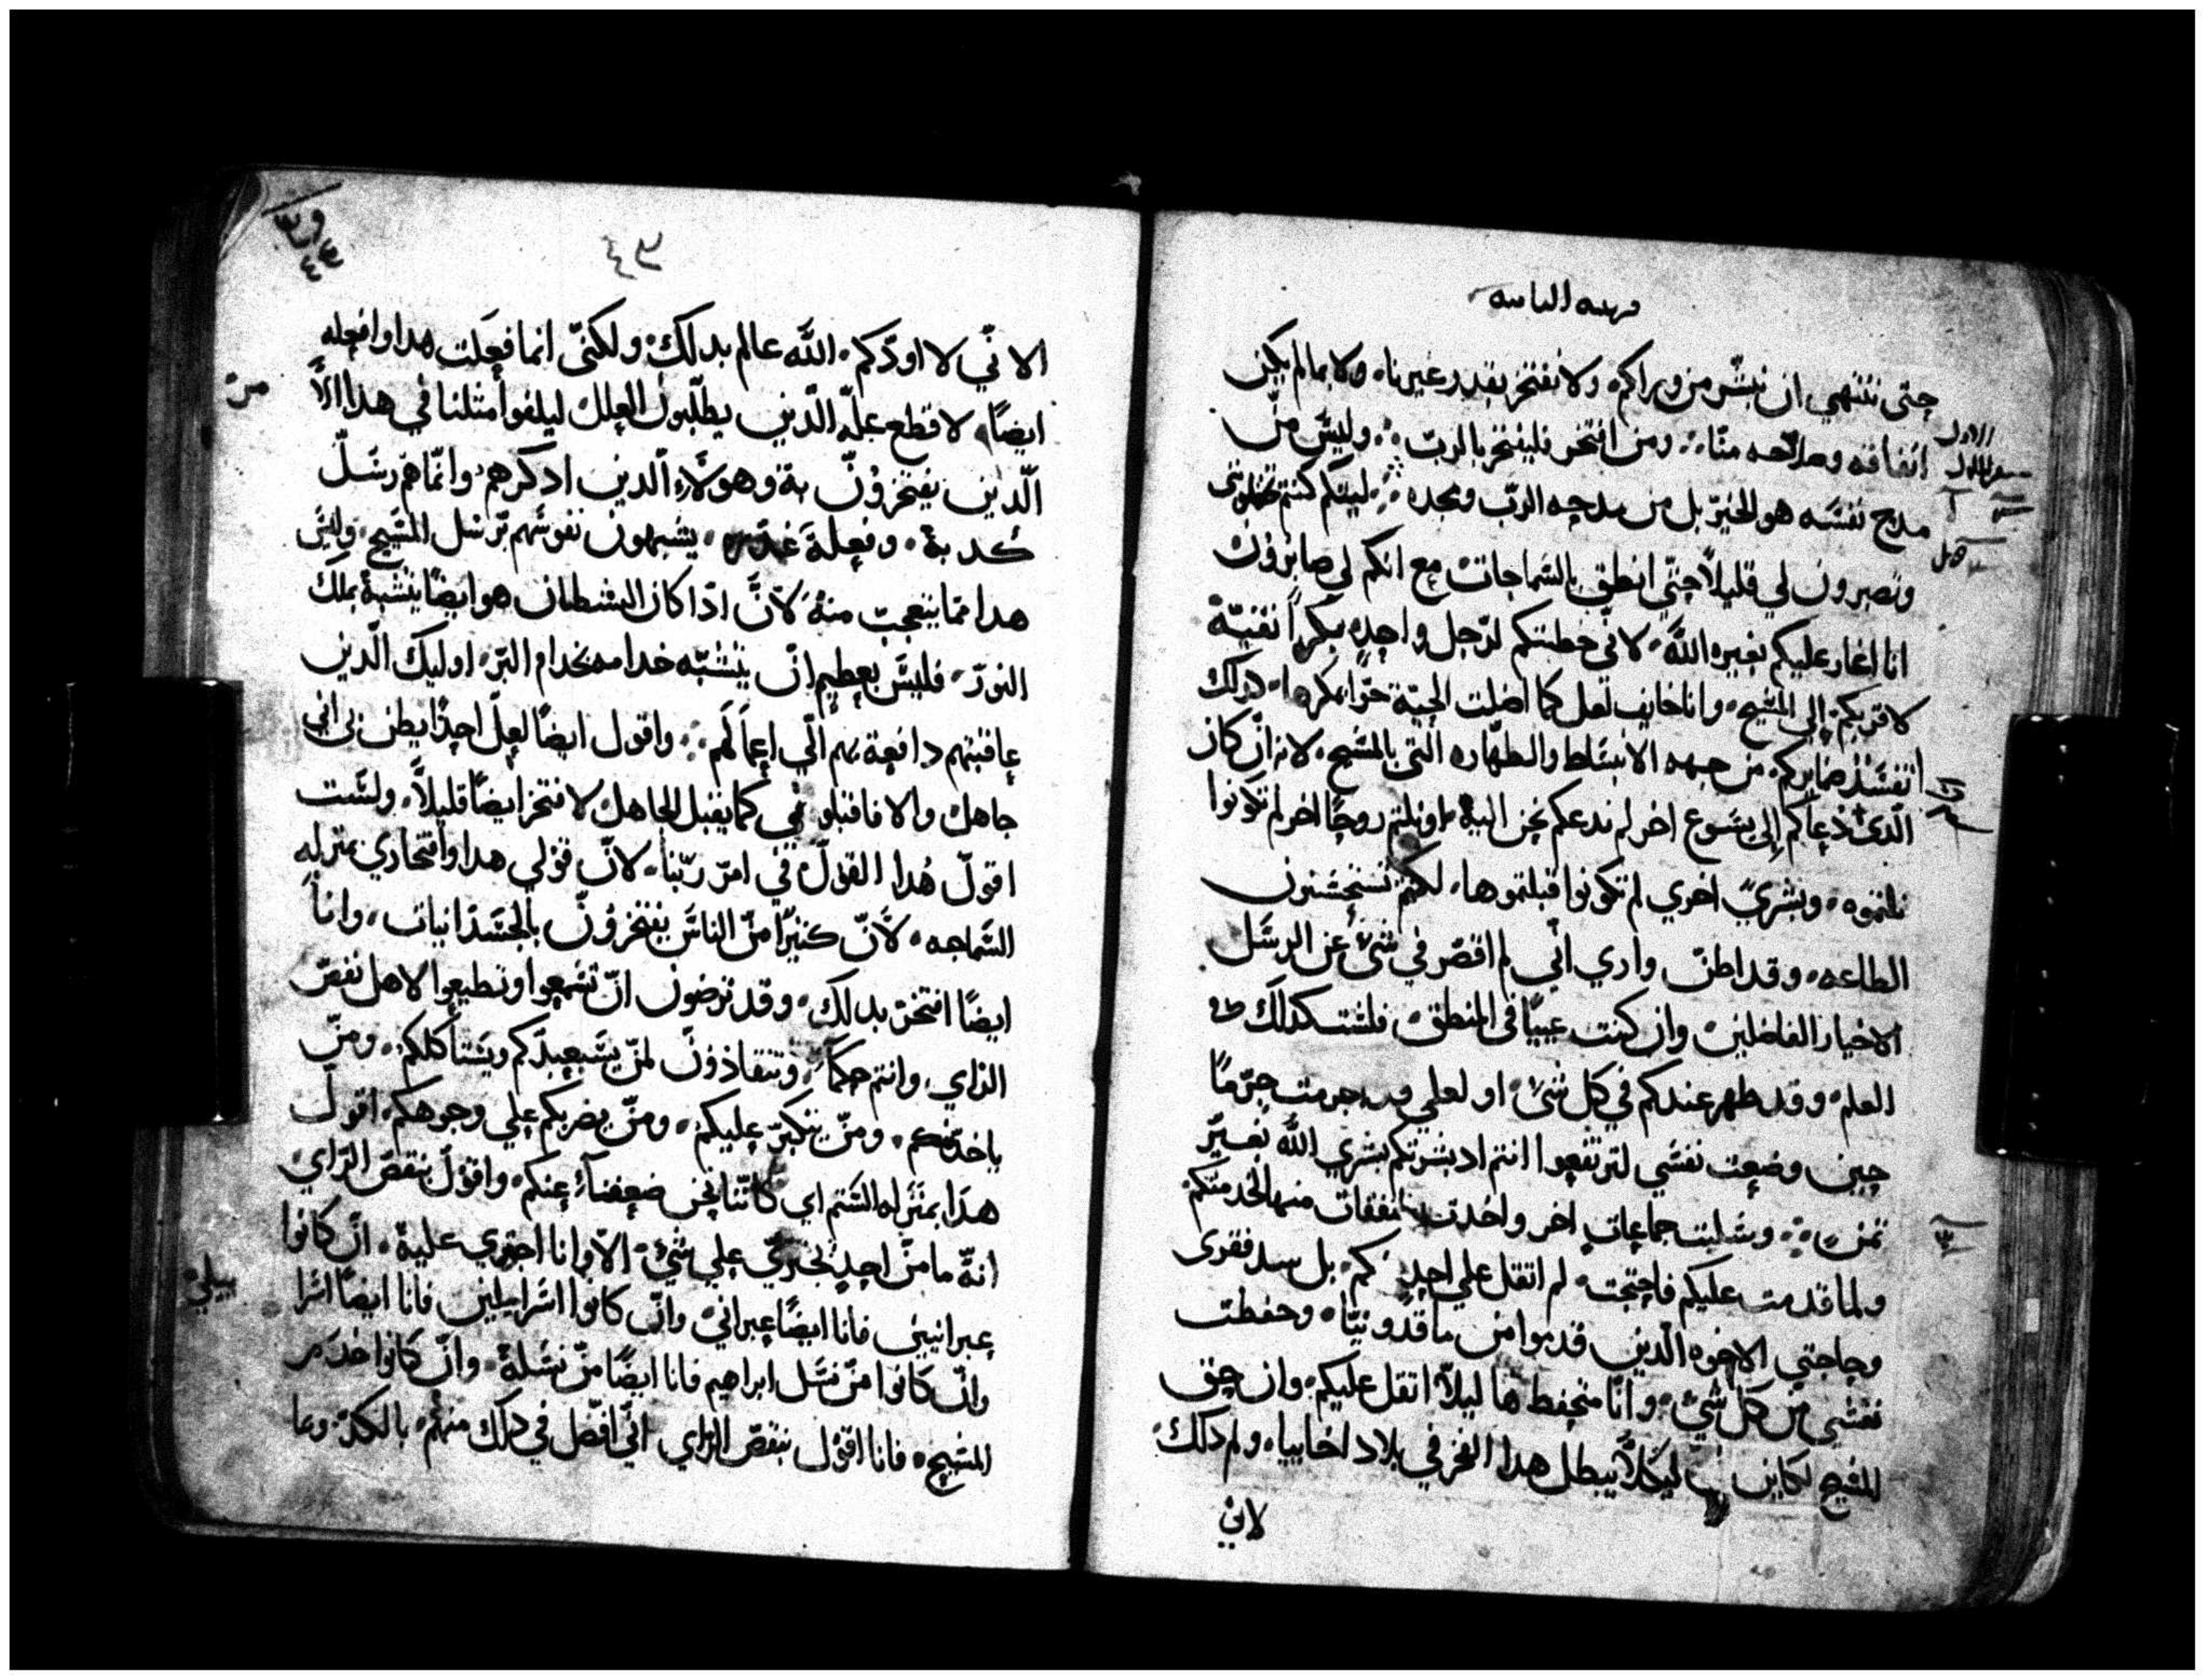 حتى ننتهي ان نبشر من وراكم ولا نفتخر بقدر غيرنا ولا بما لم يكن
اتفاقه وصلاحه منا ومن افتخر فليفتخر بالرب وليس من
مدح نفسه هو الخير بل من مدحه الرب ومجده ليتكم كنتم
وتصبرون لي قليلاً حتي انطق بالسماجات مع انكم لي صابرون
انا اغار عليكم بغيره الله لاني خطبتكم لرجل واحد بكراً نقية
لاقربكم إلى المسيح وانا خايف لعل كما اضلت الحية حوا بمكرها كدلك
تفسد ضمايركم من جهه الانبساط والطهاره التي بالمسيح لانه ان كان
الدي دعاكم إلى يسوع اخر لم ندعكم نحن اليه او نلتم روحاً اخر لم تكونوا
نلتموه وبشري اخري لم تكونوا قبلتموها لكنتم تستحسنون
الطاعه وقد اظن واري اني لم اقصر في شي عن الرسل
الاخيار الفاضلين وان كنت عيياً في المنطق فلست كدلك في
العلم وقد ظهر عندكم في كل شي او لعلي قد اجرمت جرماً
حين وضعت نفسي لترتفعوا انتم اد بشرتكم بشري الله بغير
ثمن وسلبت جماعات اخر واخدت نفقات منها لخدمتكم
ولما قدمت عليكم فاحتجت لم اتقل علي احد كم بل سد فقري
وحاجتي الاخوه الدين قدموا من ماقدونيا وحفظت
نفسي من كل شي وانا متحفظ ها ليلا اتقل عليكم وان حق
المسيح لكاين في ليكلا يبطل هدا الفخر في بلاد اخاييا ولم دلك
لاني
٤٣
الا ني لا اودكم الله عالم بدلك ولكني انما فعلت هدا وافعله
ايضاً لاقطع علة الدين يطلبون العلل ليلفوا مثلنا في هدا الا
الدين يفتخرون به وهولاء الدين ادكرهم وانما هم رسل
كدبة وفعلة يشبهون نفوسهم برسل المسيح وليس
هدا مما يتعجب منه لان ادا كان الشطان هو ايضاً يتشبه بملك
النور فليس بعظيم ان يتشبه خدامه بخدام البر اوليك الدين
عاقبتهم دافعة بهم الي اعمالهم واقول ايضاً لعل احداً يظن بي اني
جاهل والا فاقبلوني كما يقبل الجاهل لافتخر ايضاً قليلاً ولست
اقول هدا القول في امر ربنا لان قولي هدا وافتخاري بمنزله
السماجه لان كثيراً من الناس يفتخرون بالجسدانيات وانا
ايضاً افتخر بدلك وقد ترضون ان تسمعوا وتطيعوا لاهل نقص
الراي وانتم حكما وتنقادون لمن يستعبدكم ويستاكلكم ومن
ياخدكم ومن يتكبر عليكم ومن يضربكم علي وجوهكم اقول
هدا بمنزله الشتم اي كاننا نحن ضعفناء عنكم واقول بنقص الراي
انه ما من احد يجتري علي شي الا وانا اجتري عليه ان كانوا
عبرانيين فانا ايضاً عبراني وان كانوا اسراييليين فانا ايضاً اسرا
ييلي
وان كانوا من نسل ابراهيم فانا ايضاً من نسله وان كانوا خدم
المسيح فانا اقول بنقص الراي اني افضل في دلك منهم بالكد وبما